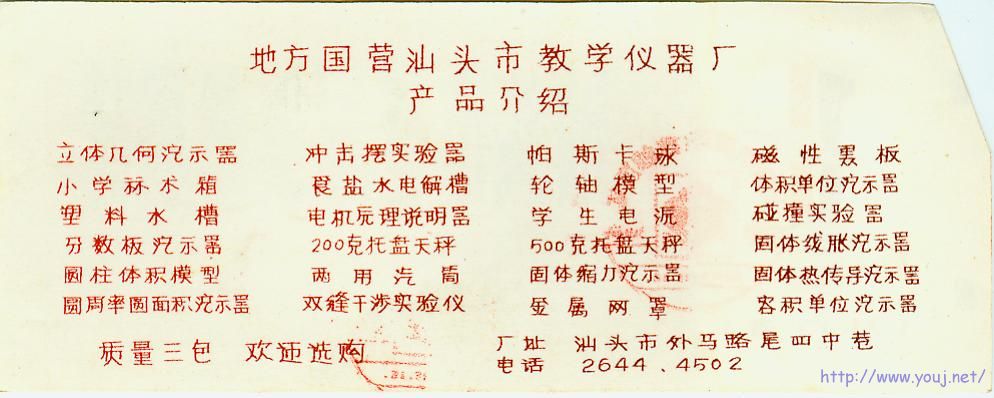 地方国营汕头市教学仪器厂
产品介绍
立体几何演示器 冲击摆实验器 帕斯卡球 磁性黑板
小学算术箱 食盐水电解槽 轮轴模型 体积单位演示器
塑料水槽 电机原理说明器 学生电源 碰撞实验器
分数板演示器 200克托盘天秤 500克托盘天秤 固体线胀演示器
圆柱体积模型 两用汽筒 固体缩力演示器 固体热传导演示器
圆周率圆面积演示器 双缝干涉实验仪 金属网罩 容积单位演示器
质量三包 欢迎选购
厂址 汕头市外马路尾四中巷
电话 2644.4502
http://www.youj.net/